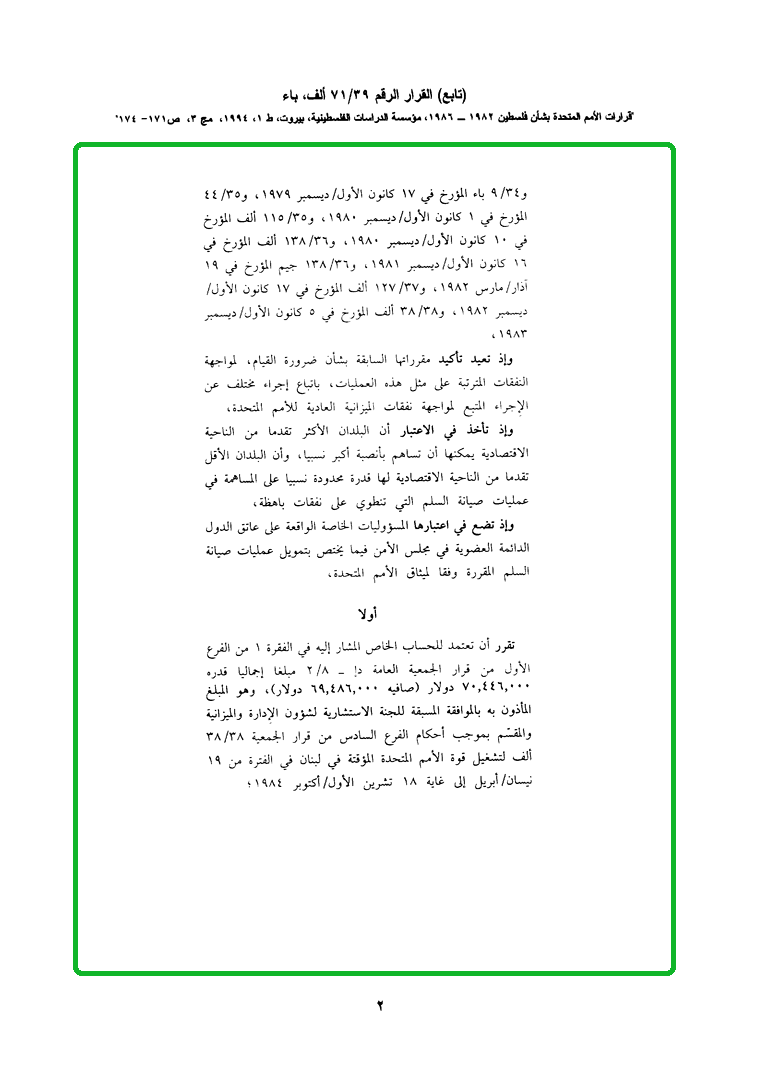 (تابع) القرار الرقم ٧١/٣٩ ألف، باء
"قرارات الأمم المتحدة بشأن فلسطين ١٩٨٢ ــ ١٩٨٦، مؤسسة الدراسات الفلسطينية، بيروت، ط ١، ١٩٩٤، مج ٣، ص١٧١- ١٧٤"
و٩/٣٤ باء المؤرخ في ١٧ كانون الأول/ديسمبر ١٩٧٩، و٤٤/٣٥
المؤرخ في ١ كانون الأول/ديسمبر ١٩٨٠، و١١٥/٣٥ ألف المؤرخ
في ١٠ كانون الأول/ديسمبر ١٩٨٠، و١٣٨/٣٦ ألف المؤرخ في
١٦ كانون الأول/ديسمبر ١٩٨١، و١٣٨/٣٦ جيم المؤرخ في ١٩
آذار/مارس ١٩٨٢، و١٢٧/٣٧ ألف المؤرخ في ١٧ كانون الأول/
ديسمبر ١٩٨٢، و٣٨/٣٨ ألف المؤرخ في ٥ كانون الأول/ديسمبر
١٩٨٣،
وإذ تعيد تأكيد مقرراتها السابقة بشأن ضرورة القيام، لمواجهة
النفقات المترتبة على مثل هذه العمليات، باتباع إجراء مختلف عن
الإجراء المتبع لمواجهة نفقات الميزانية العادية للأمم المتحدة،
وإذ تأخذ في الاعتبار أن البلدان الأكثر تقدما من الناحية
الاقتصادية يمكنها أن تساهم بأنصبة أكبر نسبيا، وأن البلدان الأقل
تقدما من الناحية الاقتصادية لها قدرة محدودة نسبيا على المساهمة في
عمليات صيانة السلم التي تنطوي على نفقات باهظة،
وإذ تضع في اعتبارها المسؤوليات الخاصة الواقعة على عاتق الدول
الدائمة العضوية في مجلس الأمن فيما يختص بتمويل عمليات صيانة
السلم المقررة وفقا لميثاق الأمم المتحدة،
أولا
تقرر أن تعتمد للحساب الخاص المشار إليه في الفقرة ١ من الفرع
الأول من قرار الجمعية العامة دإ ــ ٢/٨ مبلغا إجماليا قدره
٧٠,٤٤٦,٠٠٠ دولار (صافيه ٦٩,٤٨٦,٠٠٠ دولار)، وهو المبلغ
المأذون به بالموافقة المسبقة للجنة الاستشارية لشؤون الإدارة والميزانية
والمقسّم بموجب أحكام الفرع السادس من قرار الجمعية ٣٨/٣٨
ألف لتشغيل قوة الأمم المتحدة المؤقتة في لبنان في الفترة من ١٩
نيسان/أبريل إلى غاية ١٨ تشرين الأول/أكتوبر ١٩٨٤؛
٢